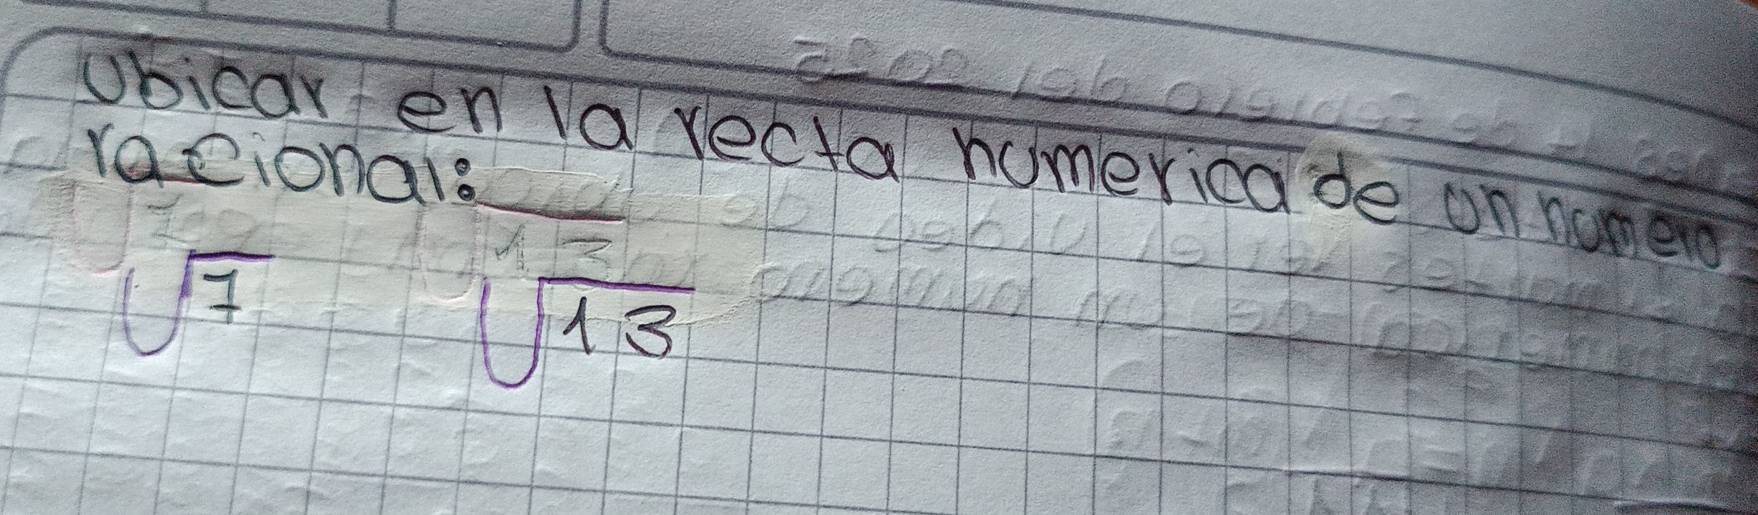 Ubicar en la recta numerica de un numero
racional:
√7 √13